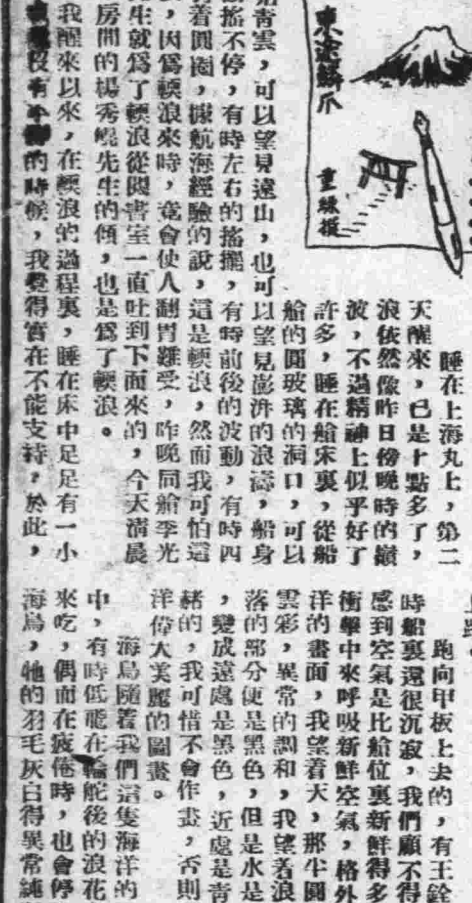 東途鱗爪
睡在上海丸上，第二
天醒來，已是十點多了，
浪依然像昨日傍晚時的巔
波，不過精神上似乎好了
許多，睡在艙床裏，從船
艙的圓玻璃的洞口，可以
青雲，可以望見遠山，也可以望見澎湃的浪濤，船身
搖不停，有時左右的搖擺，有時前後的波動，有時四
着圓圈，據航海經驗的說，這是輭浪，然而我可怕這
，因爲輭浪來時，竟會使人翻胃難受，昨晚同艙李光
生就爲了輭浪從閱書室一直吐到下面來的，今天淸晨
房間的楊秀鯤先生的傾，也是爲了輭浪。
我醒來以來，在輭浪的過程裏，睡在床中足足有一小
沒有的時候，我覺得實在不能支持，於此，
跑向甲板上去的，有王銓
時船裏還很沉寂，我們顧不得
感到空氣是比艙位裏新鮮得多
衝擊中來呼吸新鮮空氣，格外
洋的畫面，我望着天，那半圓
雲彩，異常的調和，我望着浪
落的部分便是黑色，但是水是
，變成遠處是黑色，近處是青
赭的，我可惜不會作畫，否則
洋偉大美麗的圖畫。
海鳥隨着我們這隻海洋的
中，有時低飛在輪舵後的浪花
來吃，偶而在疲倦時，也會停
海鳥，牠的羽毛灰白得異常純